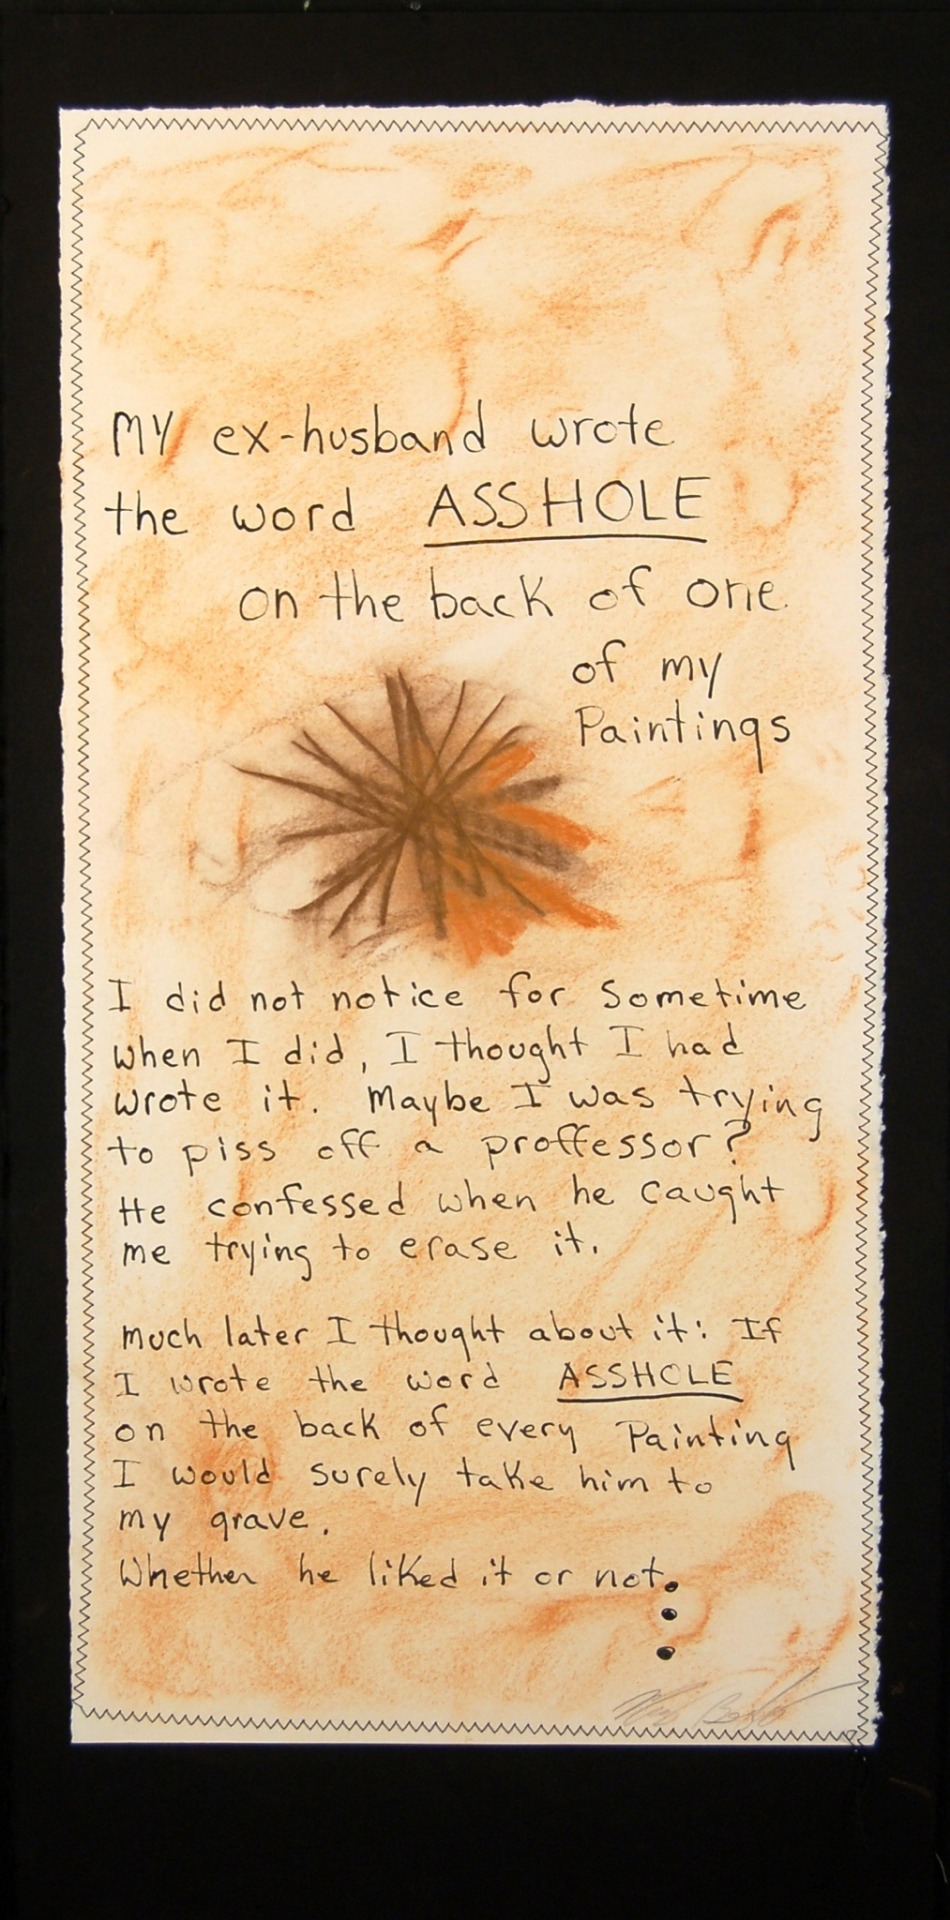 MY ex-husband wrote
the word ASSHOLE
on the back of one
of my
Paintings
I did not notice for Sometime
when I did, I thought I had
wrote it. Maybe I was trying
to piss off a proffessor?
He confessed when he caught
me trying to erase it.
Much later I thought about it: If
I wrote the word ASSHOLE
on the back of every Painting
I would surely take him to
my grave.
Whether he liked it or not...